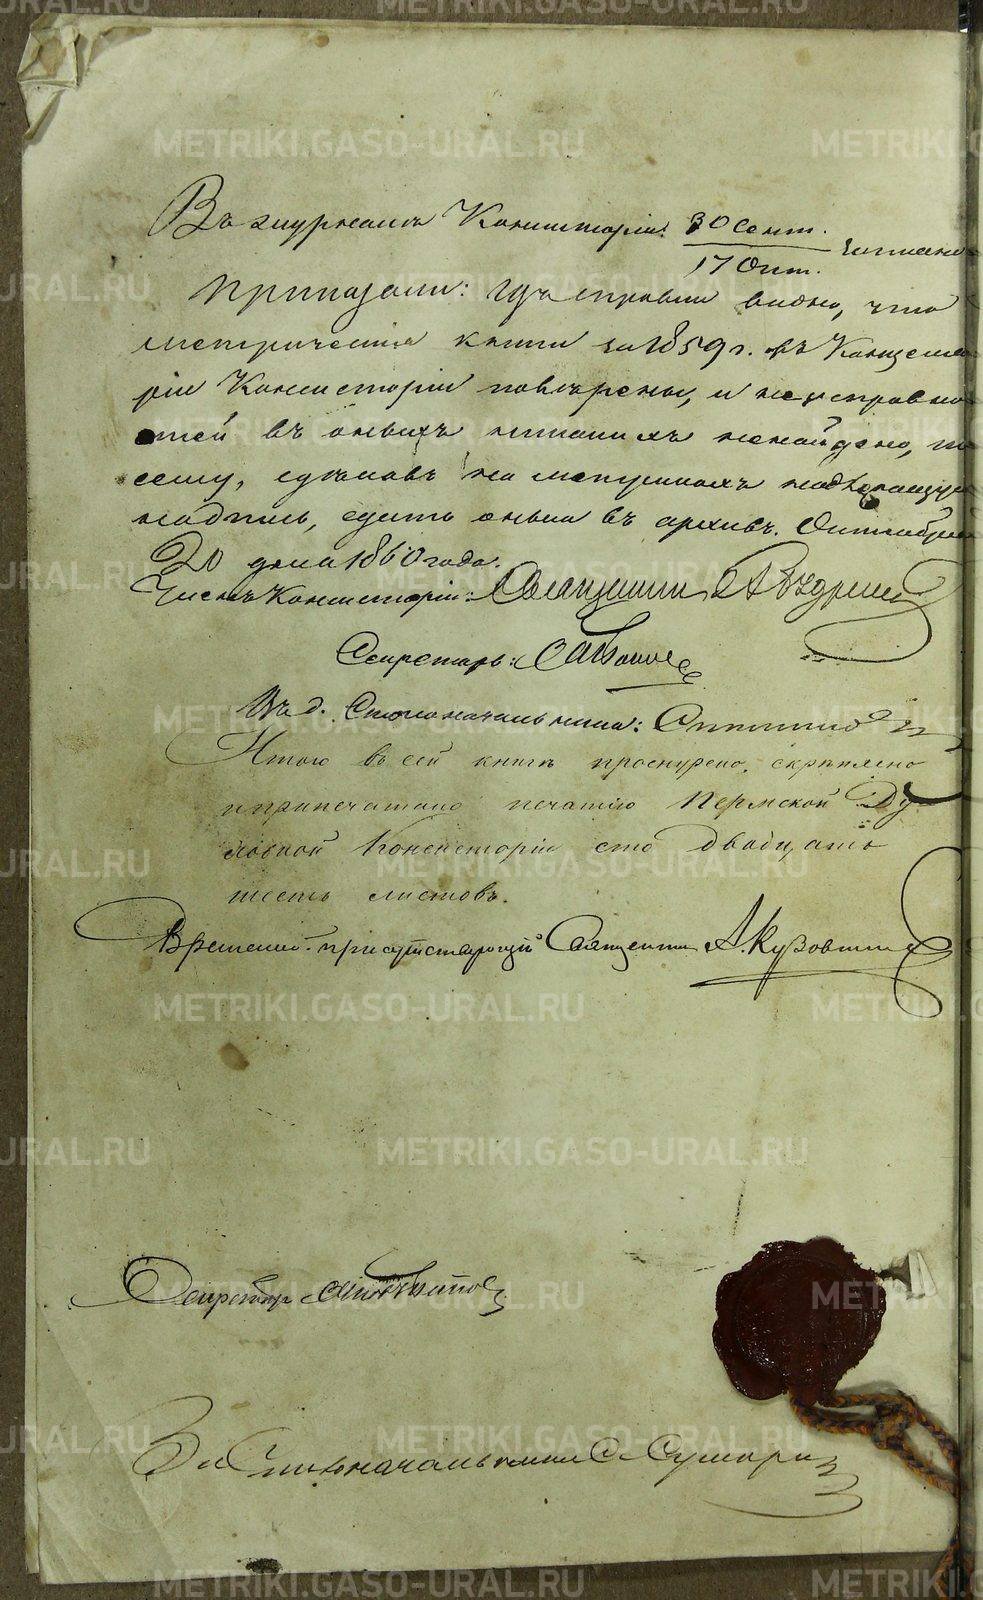 Въ журналѣ Консисторіи 30 Сент. / 17 Окт. читано
Приказали: изъ справки видно, что
метрическія книги за 1859 г. въ Канцеля
ріи Консисторіи повѣрены, и неисправно
стей въ оныхъ никакихъ ненайдено, по
сему, сдѣлавъ на метрикахъ надлежащую
надпись, сдать оныя въ архивъ. Октября
20 дня 1860 года.
Членъ Консисторіи: Священникъ
Секретарь:
Въ д. Столоначальника:
Итого въ сей книгѣ прошнурено, скрѣплено
и припечатано печатію Пермской Ду
ховной Консисторіи сто двадцать
шесть листовъ.
Времен. присутствующій Священникъ А. Кузовник
Секретарь
За Столоначальника
METRIKI.GASO-URAL.RU